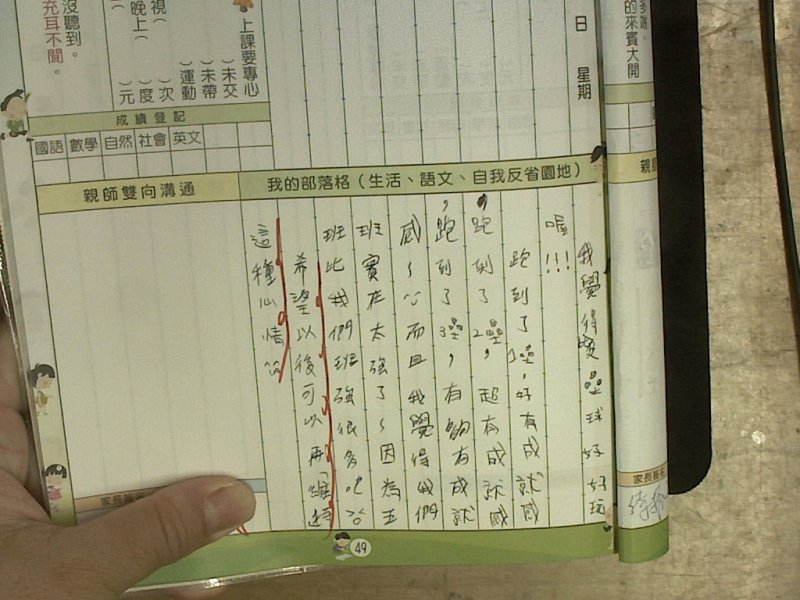 的來賓大開
日 星期
上課要專心
)未交
)未帶
)運動
視( )次
晚上( )度
)元
沒聽到。
充耳不聞。
成績登記
國語 數學 自然 社會 英文
親師雙向溝通
我的部落格(生活、語文、自我反省園地)
我覺得樂樂球好好玩
喔!!!
跑到了1壘,好有成就感
,跑到了2壘,超有成就感
,跑到了3壘,有夠有成就
感~而且我覺得我們
班實在太強了~因為五
班比我們班強很多吧
希望以後可以再維持
這種心情
49